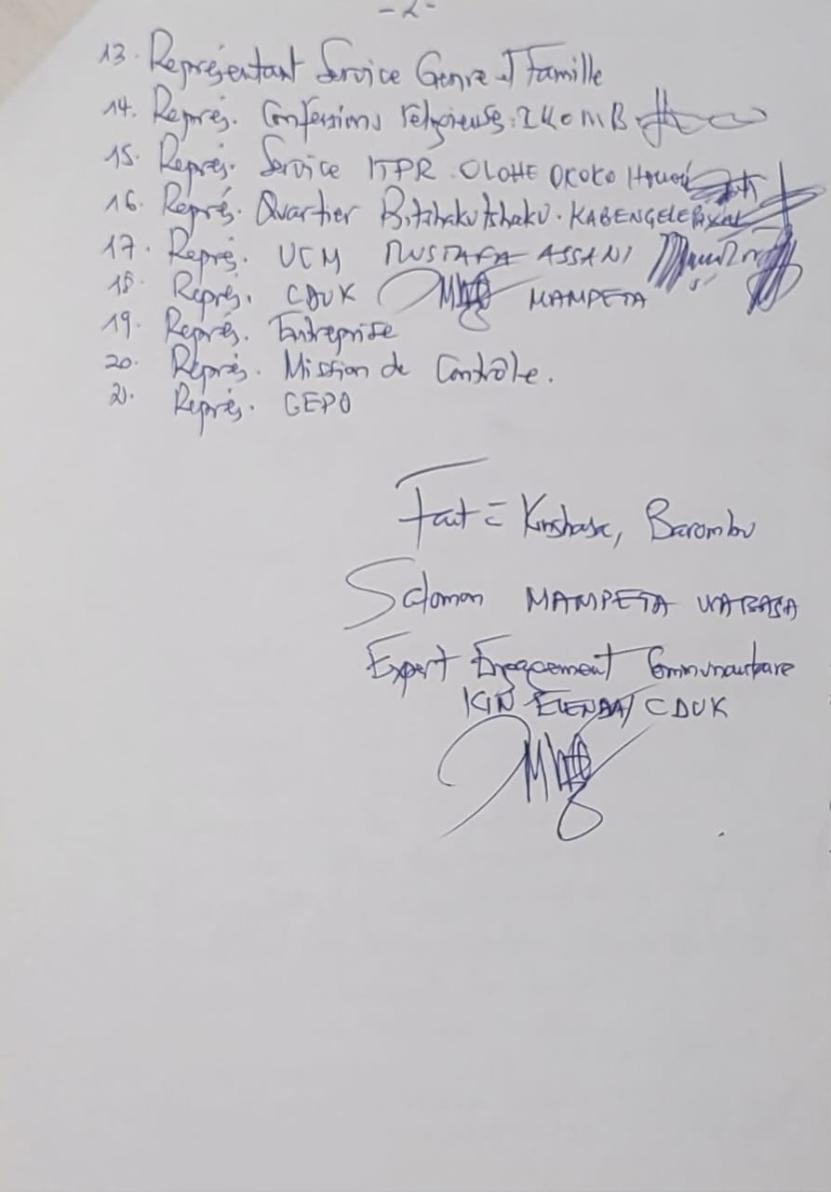 -2-
13. Représentant Service Genre et Famille
14. Représ. Confessions religieuses: IKOMB
15. Représ. Service ITPR OLOHE OKOKO
16. Représ. Quartier Bitshakutshaku. KABENGELE
17. Représ. UCM MUSTAFA ASSANI
18. Représ. CDUK MAMPETA
19. Représ. Entreprise
20. Représ. Mission de Contrôle.
21. Représ. GEPO
Fait = Kinshasa, Barumbu
Salomon MAMPETA WABASA
Expert Engagement Communautaire
KIN ELENDA/CDUK